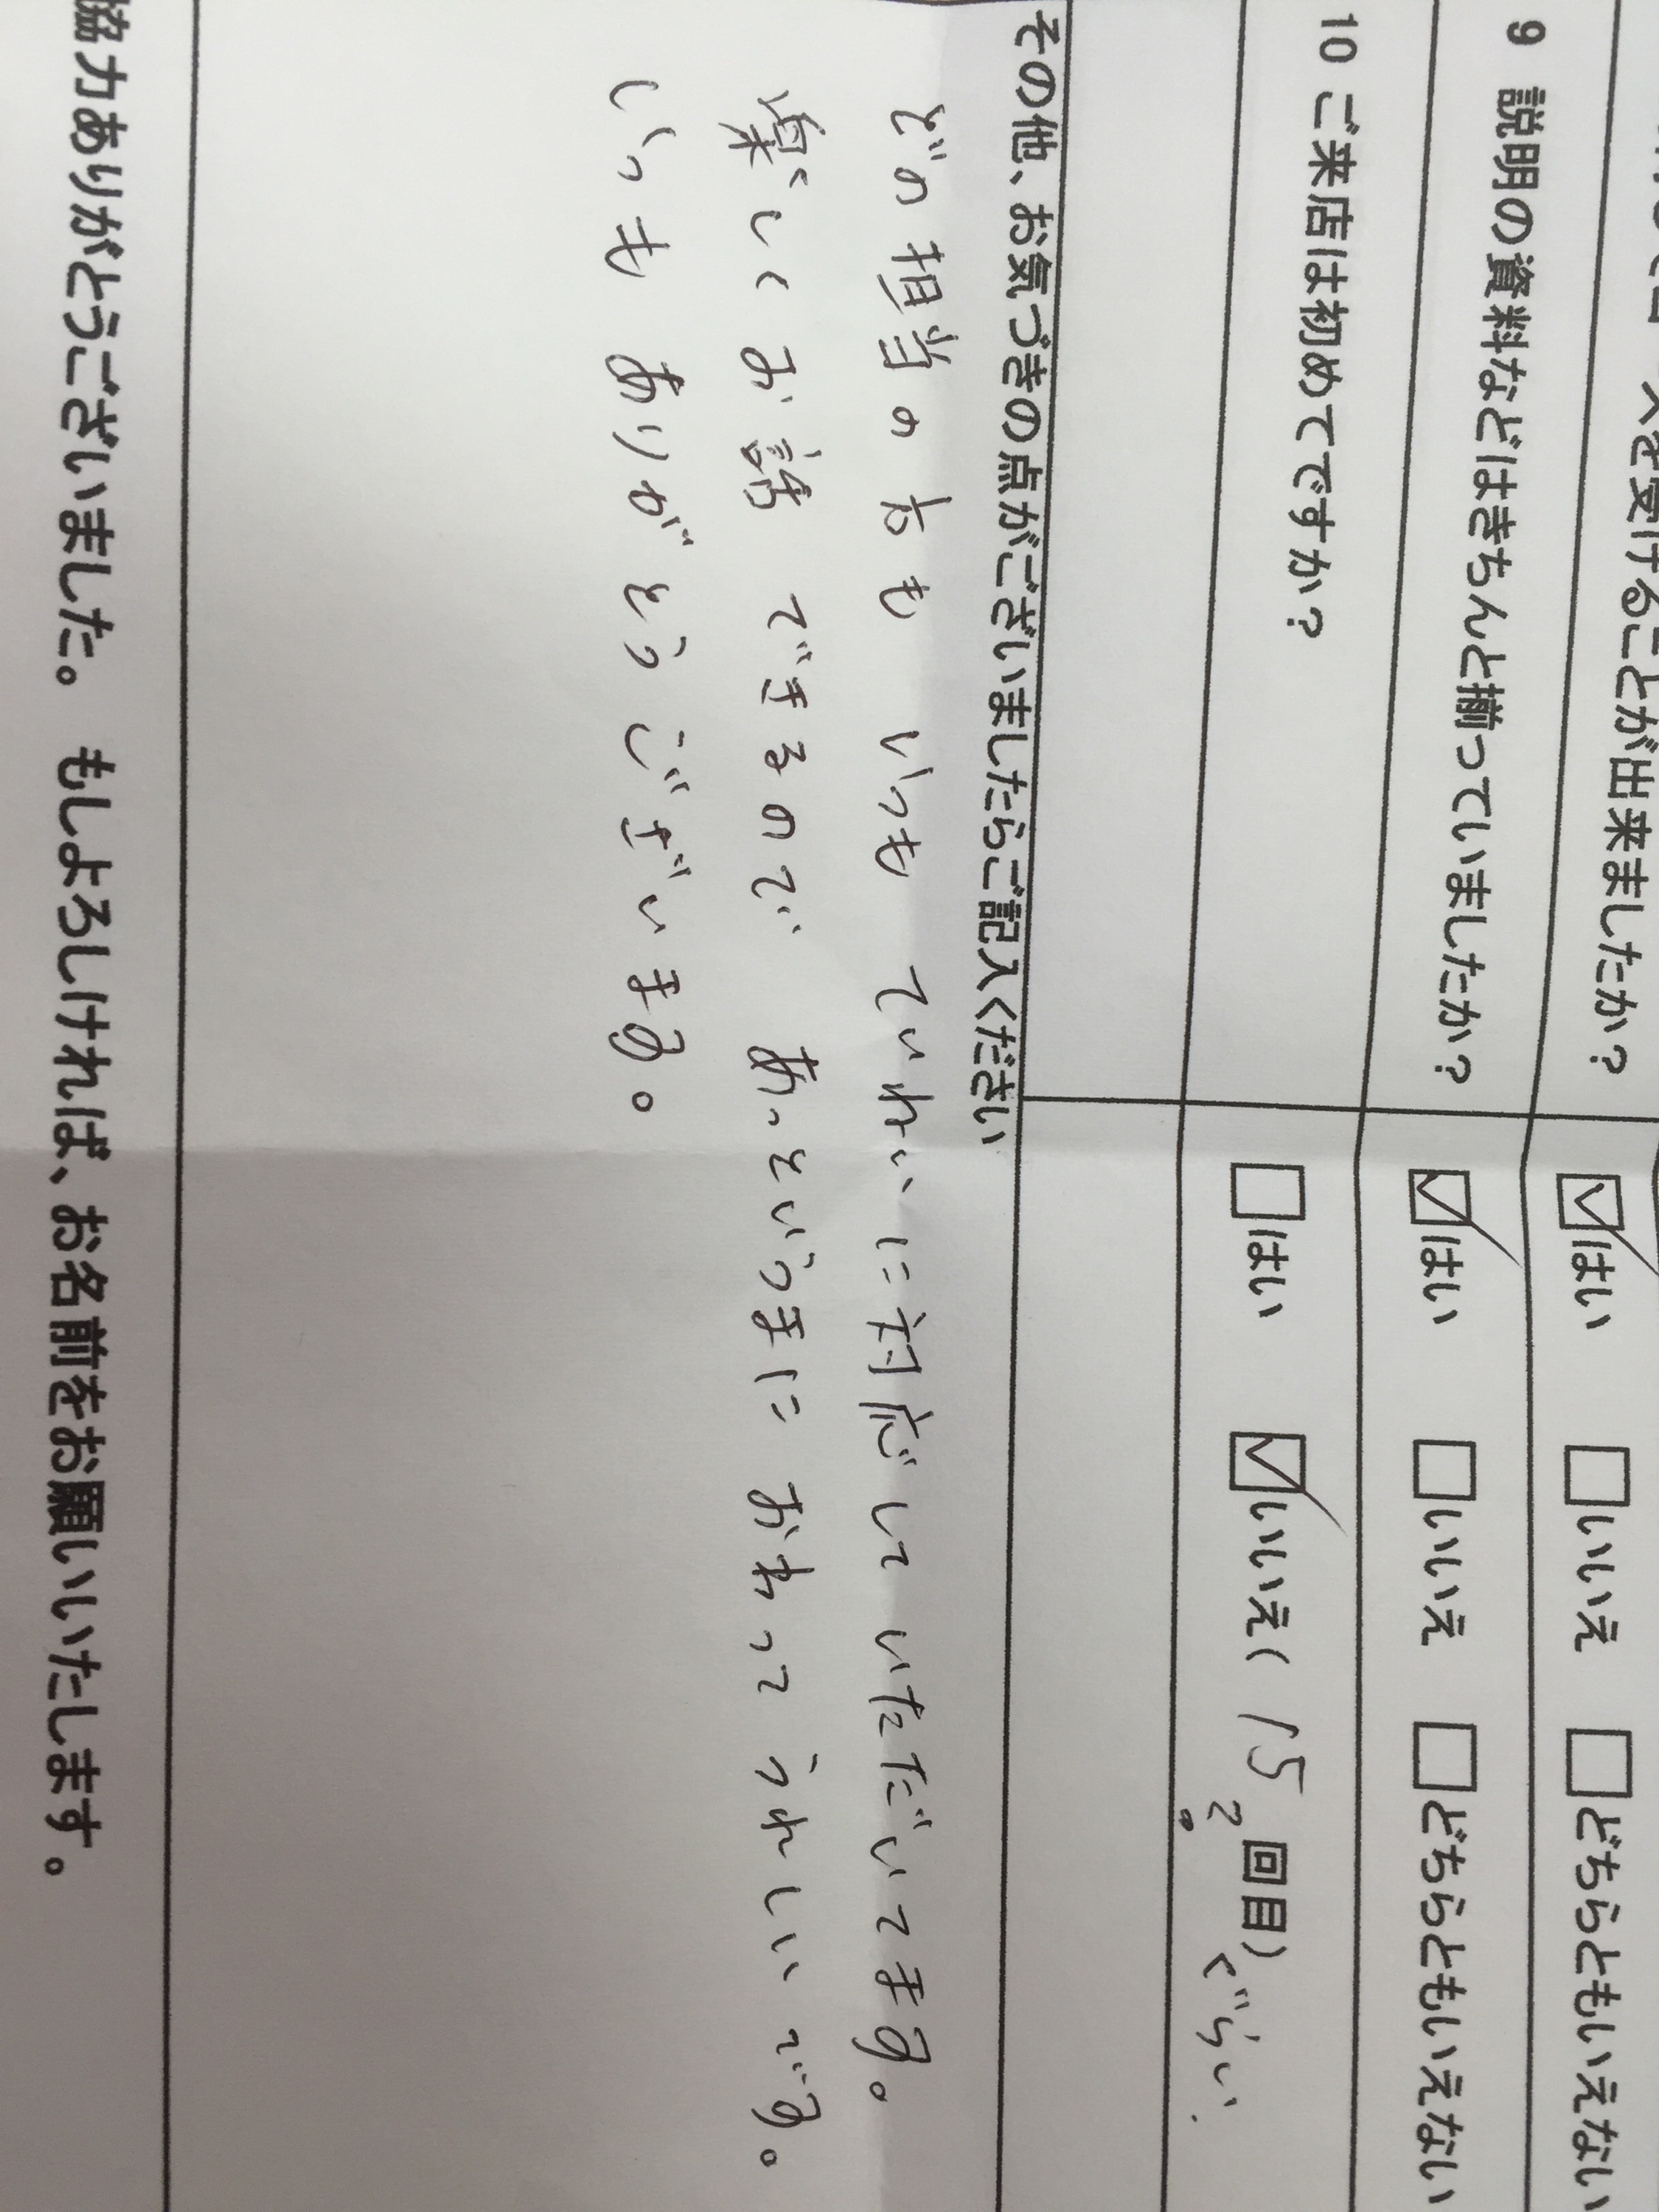 を受けることが出来ましたか? ☑はい □いいえ □どちらともいえない
9 説明の資料などはきちんと揃っていましたか? ☑はい □いいえ □どちらともいえない
10 ご来店は初めてですか? □はい ☑いいえ( 15 回目)ぐらい
?
その他、お気づきの点がございましたらご記入ください
どの担当の方も いつも ていねいに対応して いただいてます。
楽しくお話できるので あっというまに おわって うれしいです。
いつも ありがとうございます。
協力ありがとうございました。 もしよろしければ、お名前をお願いいたします。